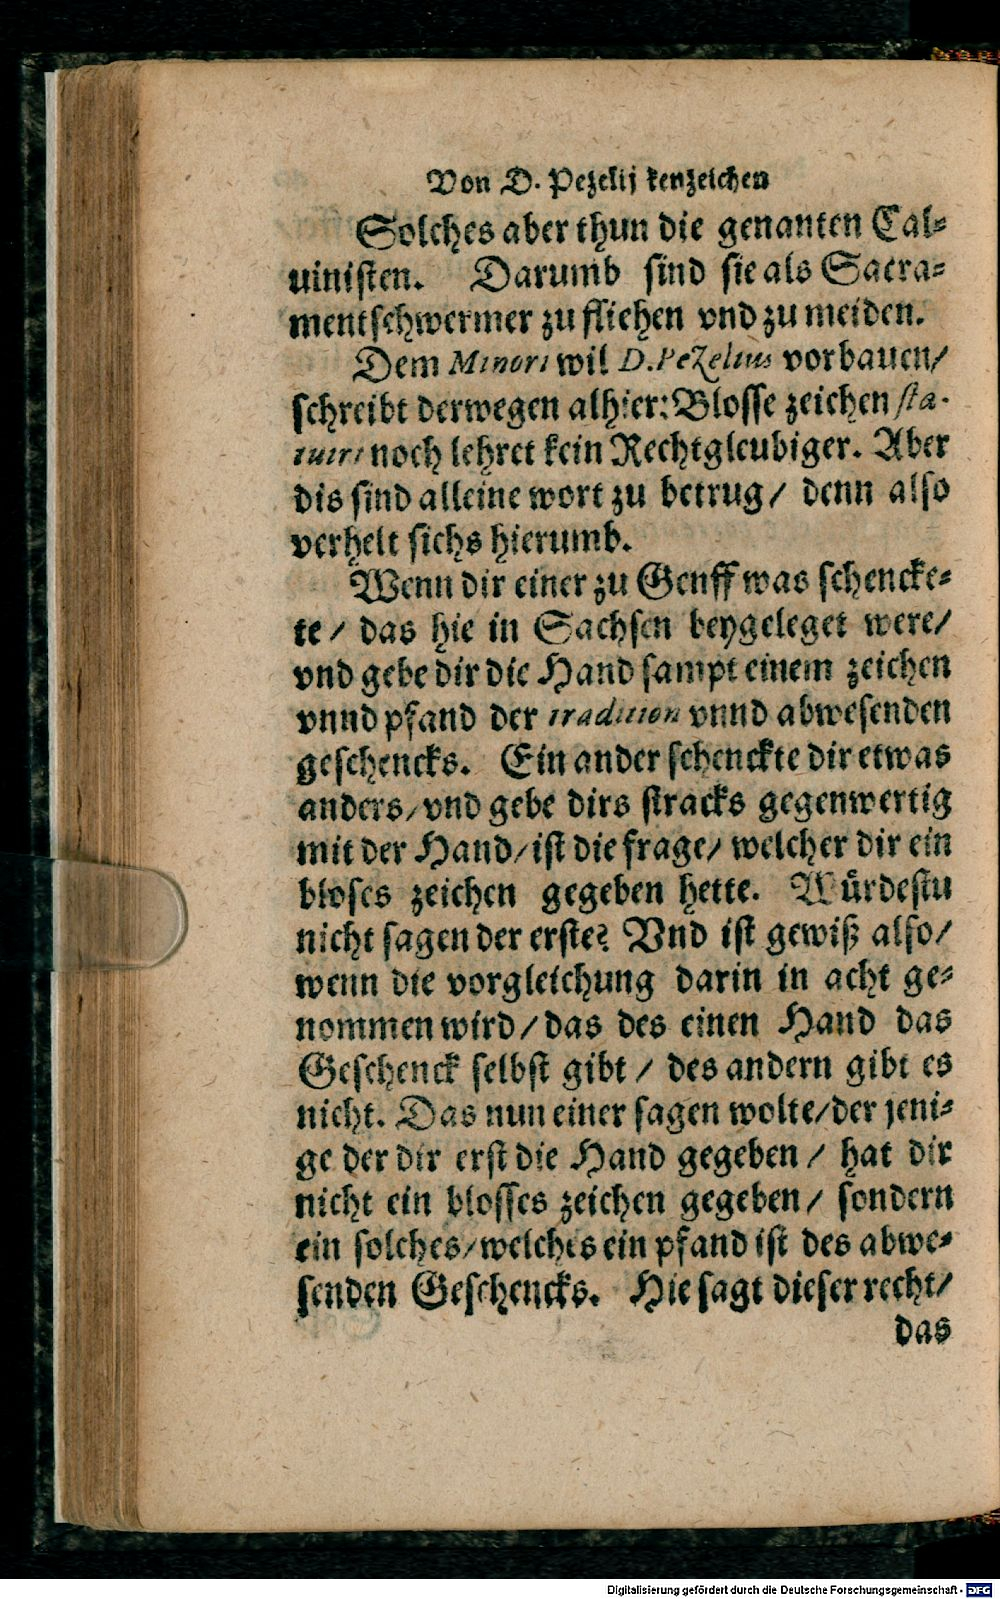 Von D. Pezelij kenzeichen
Solches aber thun die genanten Cal⸗
uinisten. Darumb sind sie als Sacra⸗
mentschwermer zu fliehen vnd zu meiden.
Dem Minori wil D. Pezelius vorbauen/
schreibt derwegen alhier: Blosse zeichen sta-
tuirt noch lehret kein Rechtgleubiger. Aber
dis sind alleine wort zu betrug/ denn also
verhelt sichs hierumb.
Wenn dir einer zu Genff was schencke⸗
te/ das hie in Sachsen beygeleget were/
vnd gebe dir die Hand sampt einem zeichen
vnnd pfand der tradition vnnd abwesenden
geschencks. Ein ander schenckte dir etwas
anders/ vnd gebe dirs stracks gegenwertig
mit der Hand/ ist die frage/ welcher dir ein
bloses zeichen gegeben hette. Würdestu
nicht sagen der erste? Vnd ist gewiß also/
wenn die vorgleichung darin in acht ge⸗
nommen wird/ das des einen Hand das
Geschenck selbst gibt/ des andern gibt es
nicht. Das nun einer sagen wolte/ der jeni⸗
ge der dir erst die Hand gegeben/ hat dir
nicht ein blosses zeichen gegeben/ sondern
ein solches/ welches ein pfand ist des abwe⸗
senden Geschencks. Hie sagt dieser recht/
das
Digitalisierung gefördert durch die Deutsche Forschungsgemeinschaft - DFG